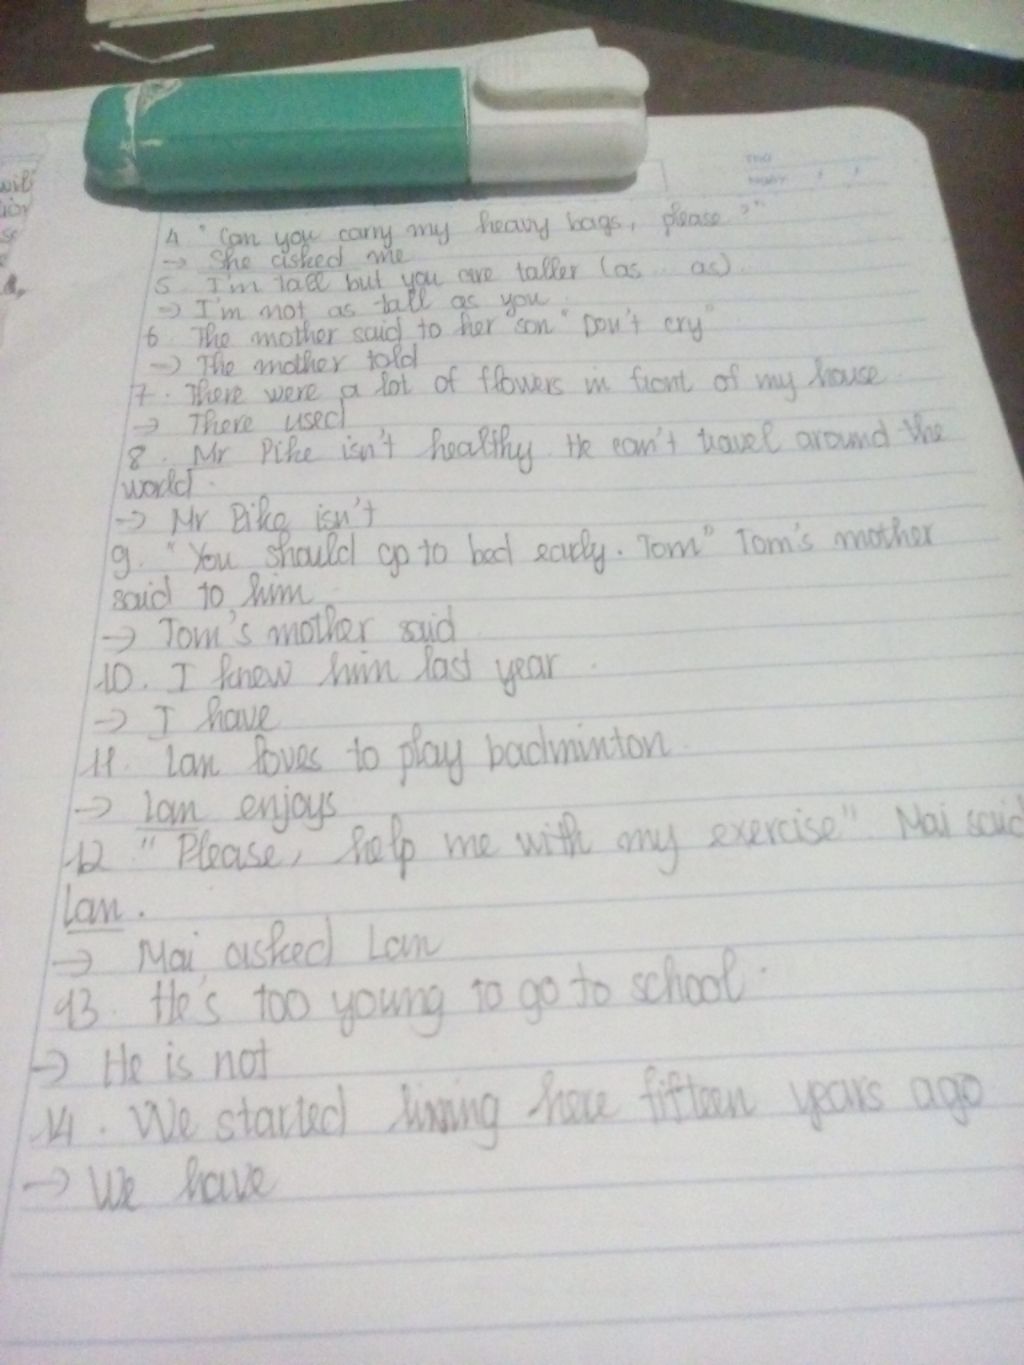 will
4 "Can you carry my heavy bags, please?"
-> She asked me
5. I'm tall but you are taller (as ... as)
-> I'm not as tall as you
6 The mother said to her son "Don't cry"
-> The mother told
7. There were a lot of flowers in front of my house
-> There used
8. Mr Pike isn't healthy. He can't travel around the
world.
-> Mr Pike isn't
9. "You should go to bed early. Tom" Tom's mother
said to him
-> Tom's mother said
10. I knew him last year.
-> I have
11. Lan loves to play badminton.
-> Lan enjoys
12 "Please, help me with my exercise" Mai said
Lan.
-> Mai asked Lan
13. He's too young to go to school.
-> He is not
14. We started living here fifteen years ago
-> We have